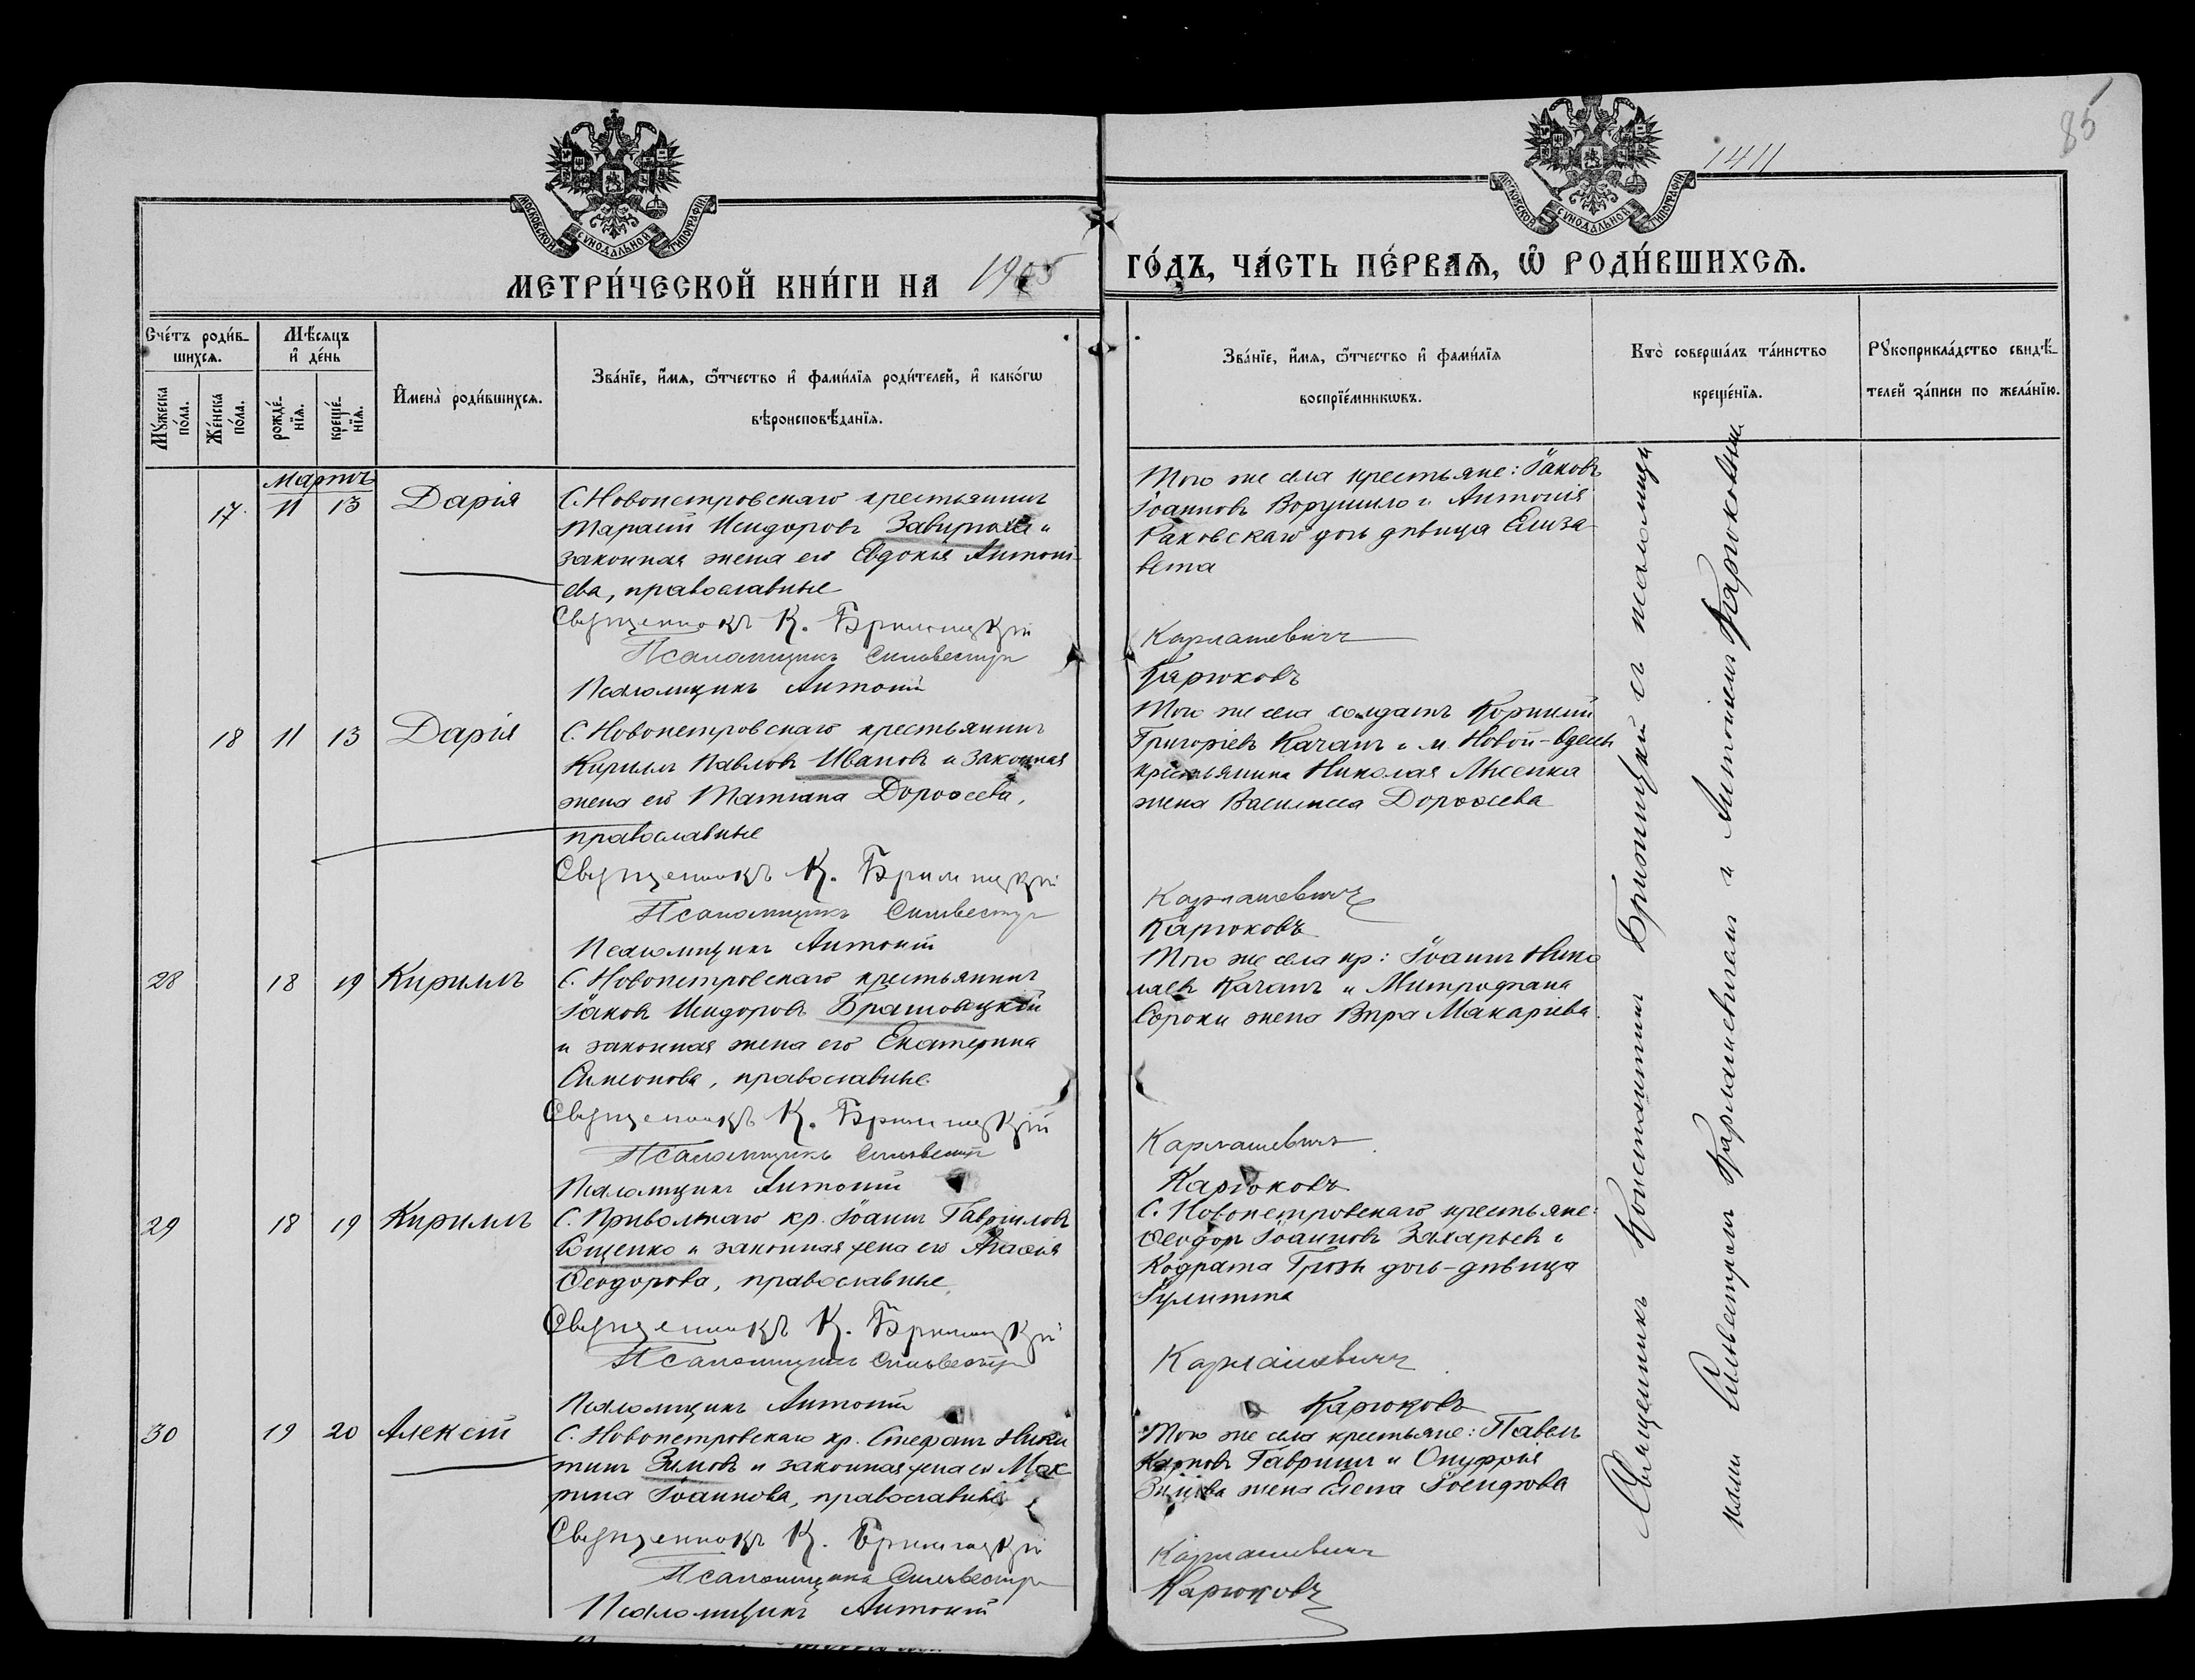 85
1411
МОСКОВСКОЙ СѴНОДАЛЬНОЙ ТИПОГРАФІИ
МОСКОВСКОЙ СѴНОДАЛЬНОЙ ТИПОГРАФІИ
МЕТРИ́ЧЕСКОЙ КНИ́ГИ НА 1905
ГО́ДЪ, ЧА́СТЬ ПЕ́РВАѦ, Ѡ҆ РОДИ́ВШИХСѦ.
Сче́тъ роди́в-
шихсѧ.
Мꙋ́жеска по́ла.
Же́нска по́ла.
Мѣ́сѧцъ
и҆ де́нь
рожде́-
нїѧ.
креще́-
нїѧ.
И҆мена̀ роди́вшихсѧ.
Зва́нїе, и҆́мѧ, ѻ҆́тчество и҆ фами́лїѧ роди́телей, и҆ како́гѡ
вѣроисповѣ́данїѧ.
Зва́нїе, и҆́мѧ, ѻ҆́тчество и҆ фами́лїѧ
воспрїе́мникѡвъ.
Кто̀ соверша́лъ та́инство
креще́нїѧ.
Рꙋкоприкла́дство свидѣ́-
телей за́писи по жела́нїю.
Мартъ
17. 11 13 Дарія
С. Новопетровскаго крестьянинъ
Тарасій Исидоровъ Завирюха и
законная жена его Евдокія Антоні-
ева, православные
Священникъ К. Бржицкій
Псаломщикъ Сильвестръ
Псаломщикъ Антоній
Того же села крестьяне: Іаковъ
Іоанновъ Ворушило и Антонія
Раковскаго дочь дѣвица Елиза-
вета
Карлашевичъ
Карюковъ
18 11 13 Дарія
С. Новопетровскаго крестьянинъ
Кириллъ Павловъ Ивановъ и законная
жена его Татіана Дороѳеева,
православные
Священникъ К. Бржицкій
Псаломщикъ Сильвестръ
Псаломщикъ Антоній
Того же села солдатъ Корнилій
Григоріевъ Качанъ и м. Новой-Одессы
крестьянина Николая Лысенка
жена Василисса Дороѳеева
Карлашевичъ
Карюковъ
28 18 19 Кириллъ
С. Новопетровскаго крестьянинъ
Іаковъ Исидоровъ Брашовецкій
и законная жена его Екатерина
Симеонова, православные.
Священникъ К. Бржицкій
Псаломщикъ Сильвестръ
Псаломщикъ Антоній
Того же села кр: Іоаннъ Нико
лаевъ Качанъ и Митрофана
Сороки жена Вѣра Макаріева.
Карлашевичъ
Карюковъ
29 18 19 Кириллъ
С. Привольнаго кр. Іоаннъ Гавріиловъ
и законная жена его Агаѳія
Ѳеодорова, православные.
Священникъ К. Бржицкій
Псаломщикъ Сильвестръ
Псаломщикъ Антоній
С. Новопетровскаго крестьяне:
Ѳеодоръ Іоанновъ Захарьевъ и
Кодрата дочь-дѣвица
Іулитта
Карлашевичъ
Карюковъ
30 19 20 Алексій
С. Новопетровскаго кр. Стефанъ Ники
тинъ Зимовъ и законная жена его Мак
рина Іоаннова, православные
Священникъ К. Бржицкій
Псаломщикъ Сильвестръ
Псаломщикъ Антоній
Того же села крестьяне: Павелъ
Карповъ Гавришъ и Онуфрія
Зимова жена Елена
Карлашевичъ
Карюковъ
Священникъ Константинъ Бржицкій съ псаломщи
ками Сильвестромъ Карлашевичемъ и Антоніемъ Карюковымъ.